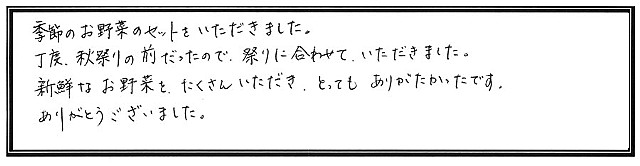 季節のお野菜のセットをいただきました。
丁度、秋祭りの前だったので、祭りに合わせて、いただきました。
新鮮なお野菜を、たくさんいただき、とっても ありがたかったです。
ありがとうございました。